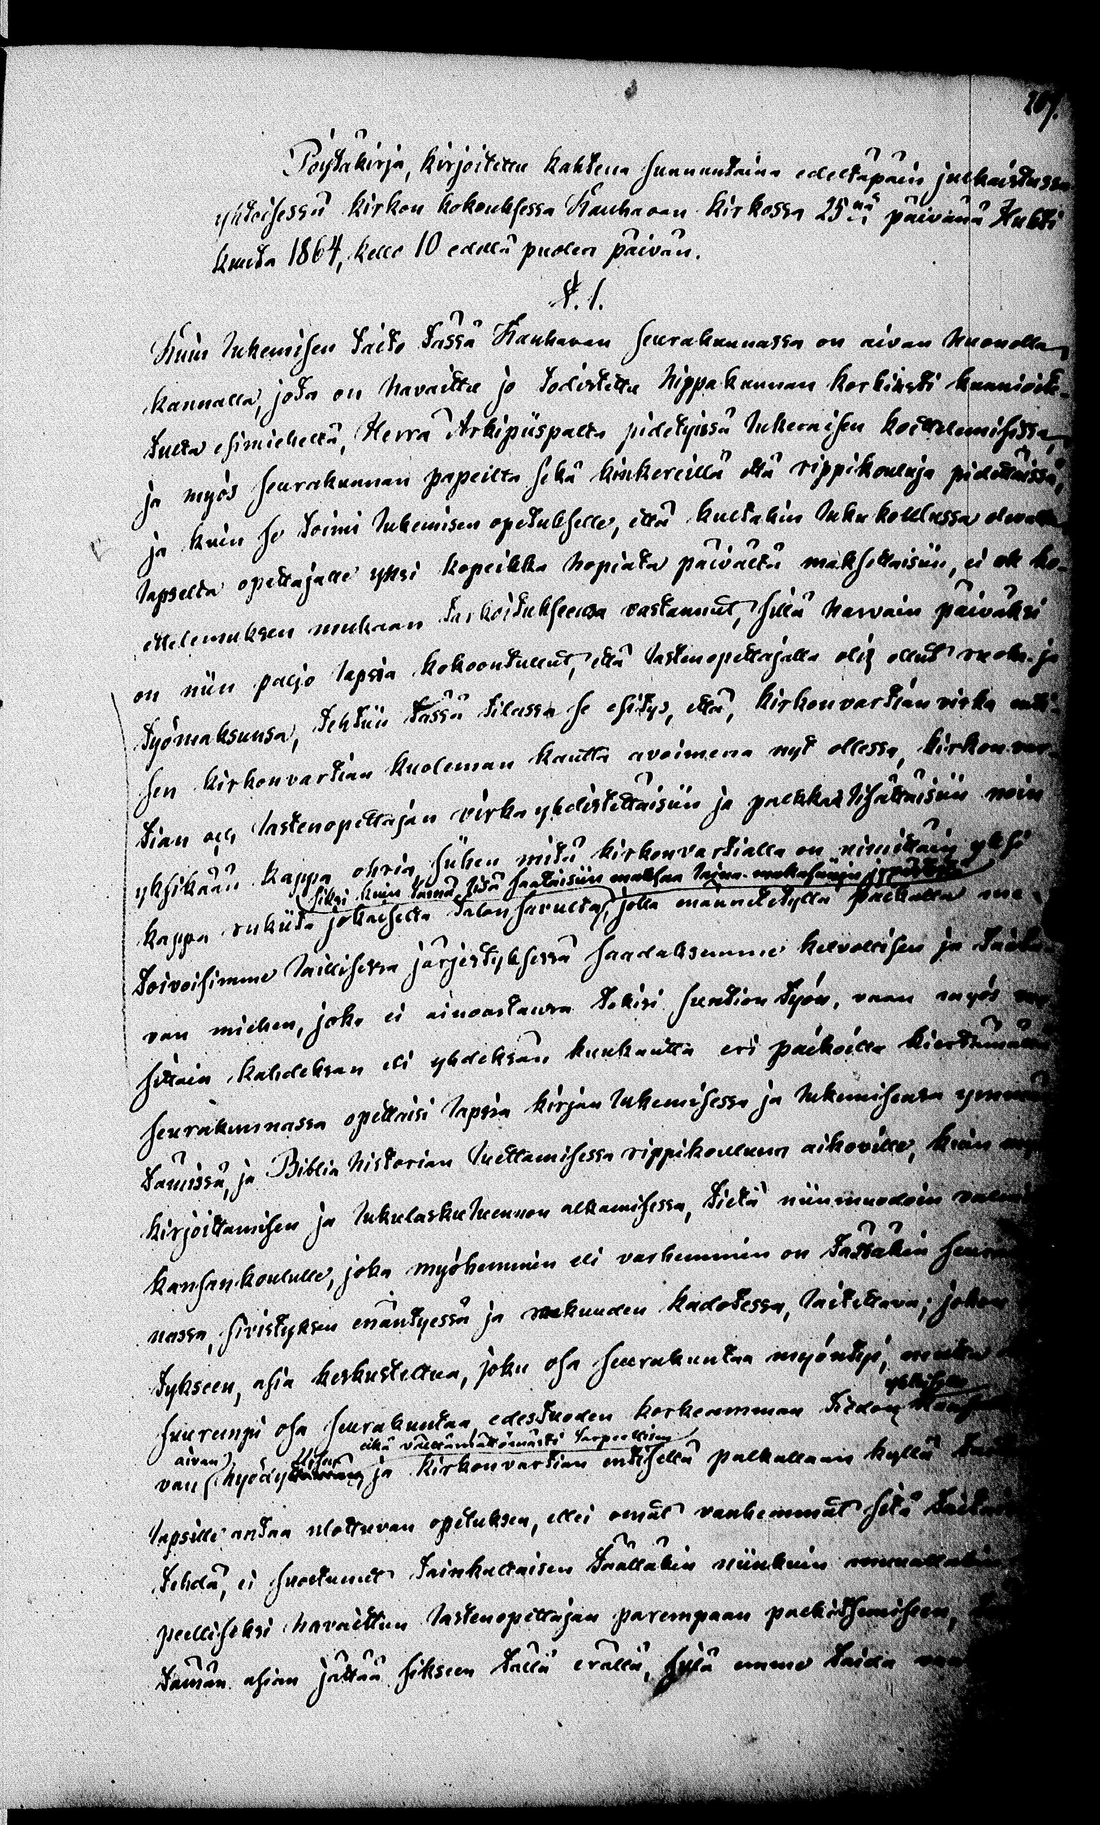 207.
Pöytäkirja, kirjoitettu kahtena sunnuntaina edeltäpäin julkaistussa
yhteisessä kirkon kokouksessa Kauhavan kirkossa 25nä päivänä Huhti
kuuta 1864, kello 10 edellä puolen päivän.
§. 1.
Kuin lukemisen taito tässä Kauhavan seurakunnassa on aivan huonolla
kannalla, jota on havaittu jo todistettu hippakunnan korkiasti kunnioite-
tulta esimieheltä, Herra Arkipiispalta pidetyissä lukemisen koettelemisissa,
ja myös seurakunnan papeilta sekä kinkereillä että rippikouluja pidettäissä,
ja kuin se toimi lukemisen opetukselle, että kultakin lukukoulussa olevalta
lapselta opettajalle yksi kopeikka hopiata päivältä maksettaisiin, ei ole ko-
ettelemuksen mukaan tarkoitukseensa vastannut, sillä harvain päiväksi
on niin paljo lapsia kokoontullut, että lastenopettajalla olis ollut ruoka- ja
työmaksunsa, tehtiin tässä tilassa se esitys, että, kirkonvartian virka enti-
sen kirkonvartian kuoleman kautta avoimena nyt ollessa, kirkonvar-
tian och lastenopettajan virka yhdistettäisiin ja palkka lisättäisiin noin
yksikään kappa ohria siihen mitä kirkonvartialla on nimittäin yksi
siksi kuin tämä lisä saataisiin maksaa laina-makasiinin
kappa rukiita jokaiselta talon savulta, jolla männitetyllä palkalla me
toivoisimme laillisessa järjestyksessä saadaksemme kelvollisen ja taita-
van miehen, joka ei ainoastansa tekisi suntion työn, vaan myös
sittäin kahdeksan eli yhdeksän kuukautta eri paikoilla kiertämällä
seurakunnassa opettaisi lapsia kirjan lukemisessa ja lukemisensa ymmär-
tämisissä, ja Biblia historian luettamisessa rippikouluun aikoville, kuin
kirjoittamisen ja lukulaskuluennon alkamisessa, tietä niinmuodoin
kansankoululle, joka myöhemmin eli varhemmin on tässäkin seurakun-
nassa, sivistyksen enäntyessä ja raakuuden kadotessa, laitettava; johon
tykseen, asia keskusteltua, joku osa seurakuntaa myöntyi, mutta
yhteiselle
suurempi osa seurakuntaa, edestuoden korkeamman tiedon
aivan eikä välttämättömästi tarpeellisen
van hyödyttömän ja kirkonvartian entisellä palkallaan kyllä
lapsille antaa ulottuvan opetuksen, ellei omat vanhemmat sitä
tehdä, ei suostunut tainkaltaisen täälläkin niinkuin muuallakin
peelliseksi havaittun lastenopettajan parempaan palkitsemiseen,
tämän asian jättää sikseen tällä erällä, sillä emme taida